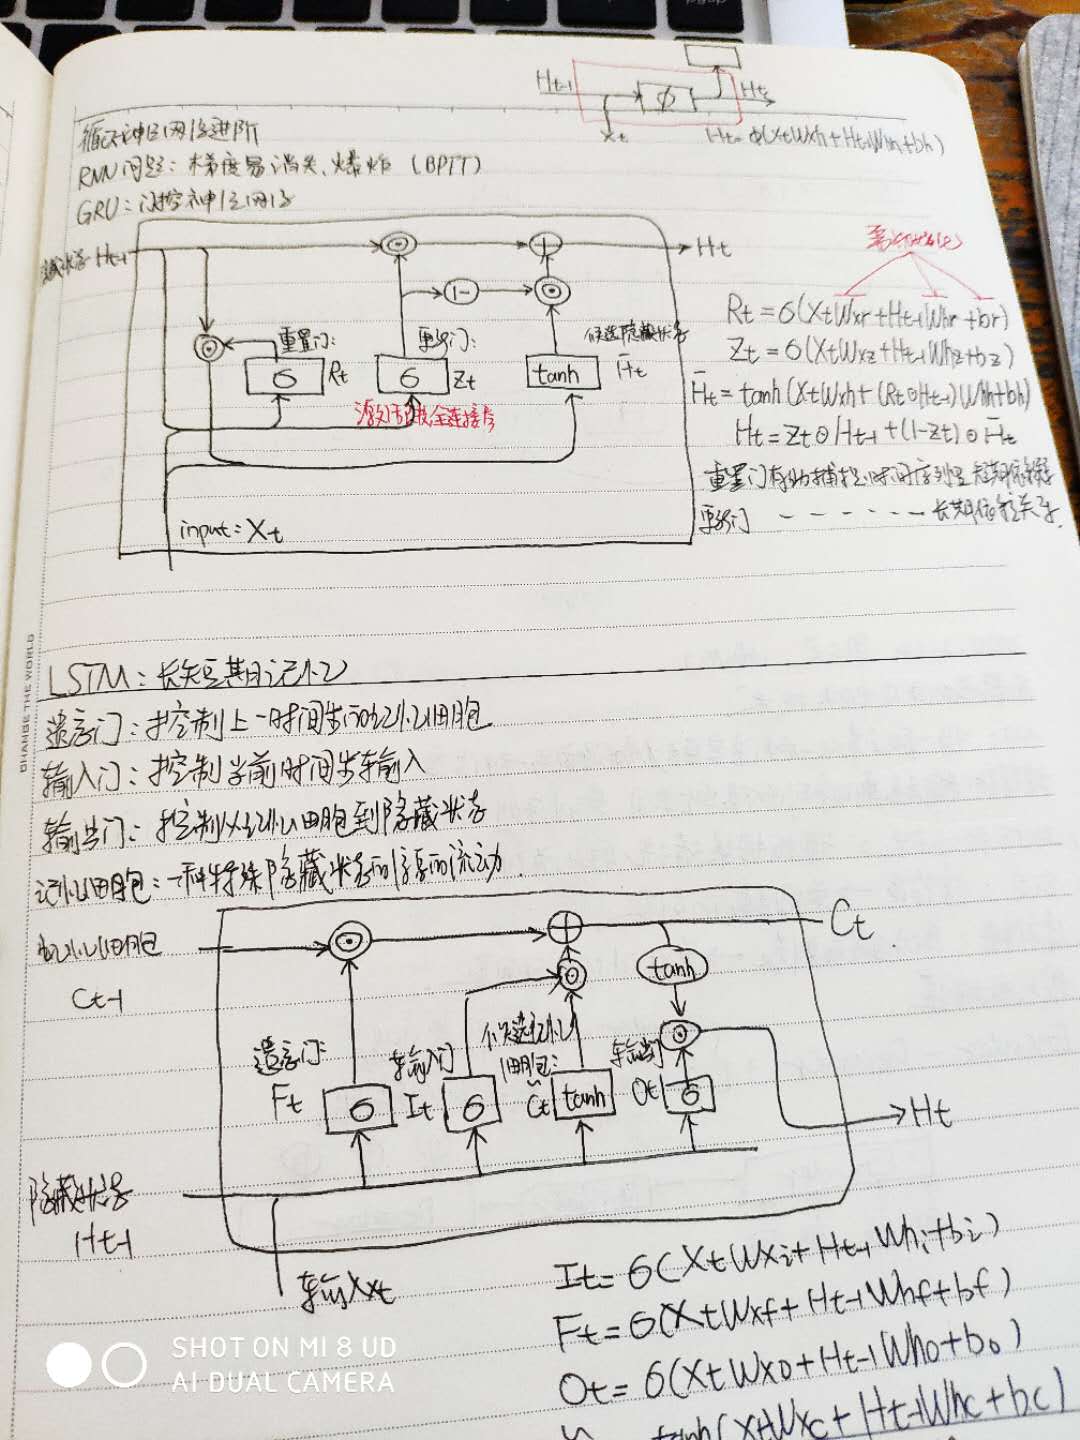 Ht-1
ϕ
Ht
Xt
Ht=ϕ(XtWxh+Ht-1Whh+bh)
循环神经网络进阶
RNN问题：梯度易消失、爆炸（BPTT）
GRU：门控神经网络
隐藏状态 Ht-1
Ht
1-
重置门：
更新门：
候选隐藏状态
σ Rt
σ Zt
tanh H̃t
input: Xt
Rt=σ(XtWxr+Ht-1Whr+br)
Zt=σ(XtWxz+Ht-1Whz+bz)
H̃t=tanh(XtWxh+(Rt⊙Ht-1)Whh+bh)
Ht=Zt⊙Ht-1+(1-Zt)⊙H̃t
重置门有助捕捉时间序列里短期依赖
更新门 - - - - - - 长期依赖关系.
CHANGE THE WORLD
LSTM：长短期记忆
遗忘门：控制上一时间步的记忆细胞
输入门：控制当前时间步输入
输出门：控制从记忆细胞到隐藏状态
记忆细胞：一种特殊隐藏状态的信息的流动
记忆细胞
Ct-1
Ct
tanh
遗忘门：
Ft σ
输入门
It σ
候选记忆
细胞：
C̃t tanh
输出门
Ot σ
Ht
隐藏状态
Ht-1
输入Xt
It=σ(XtWxi+Ht-1Whi+bi)
Ft=σ(XtWxf+Ht-1Whf+bf)
Ot=σ(XtWxo+Ht-1Who+bo)
tanh(XtWxc+Ht-1Whc+bc)
SHOT ON MI 8 UD
AI DUAL CAMERA